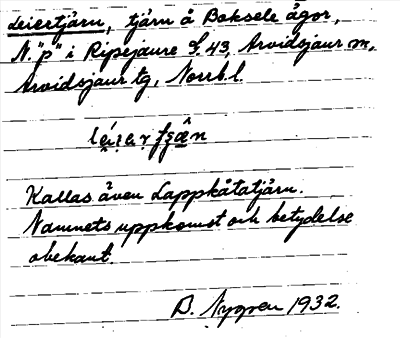 Leiertjärn, tjärn å Boksele ägor,
N. "p" i Ripejaure S. 43, Arvidsjaur sn,
Arvidsjaur tg, Norrb. l.
Kallas även Lappkåtatjärn.
Namnets uppkomst och betydelse
obekant.
B. Nygren 1932.